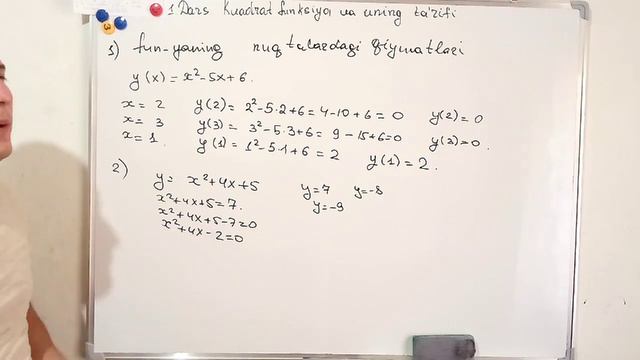 1 Dars Kvadrat funksiya va uning ta'rifi
1) fun-yaning nuqtalardagi qiymatlari
y(x) = x²-5x+6.
x= 2 y(2)= 2²-5·2+6= 4-10+6=0 y(2)=0
x= 3 y(3)= 3²-5·3+6= 9-15+6=0 y(3)=0.
x= 1. y(1)= 1²-5·1+6=2 y(1)=2.
2) y= x²+4x+5 y=7 y=-8
x²+4x+5=7. y=-9
x²+4x+5-7=0
x²+4x-2=0